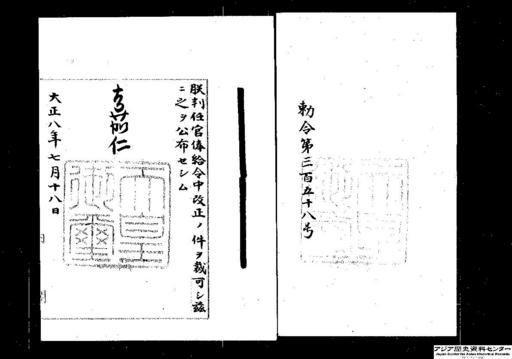 勅令第三百五十八号
朕判任官俸給令中改正ノ件ヲ裁可シ茲
ニ之ヲ公布セシム
嘉仁
大正八年七月十八日
アジア歴史資料センター
Japan Center for Asian Historical Records